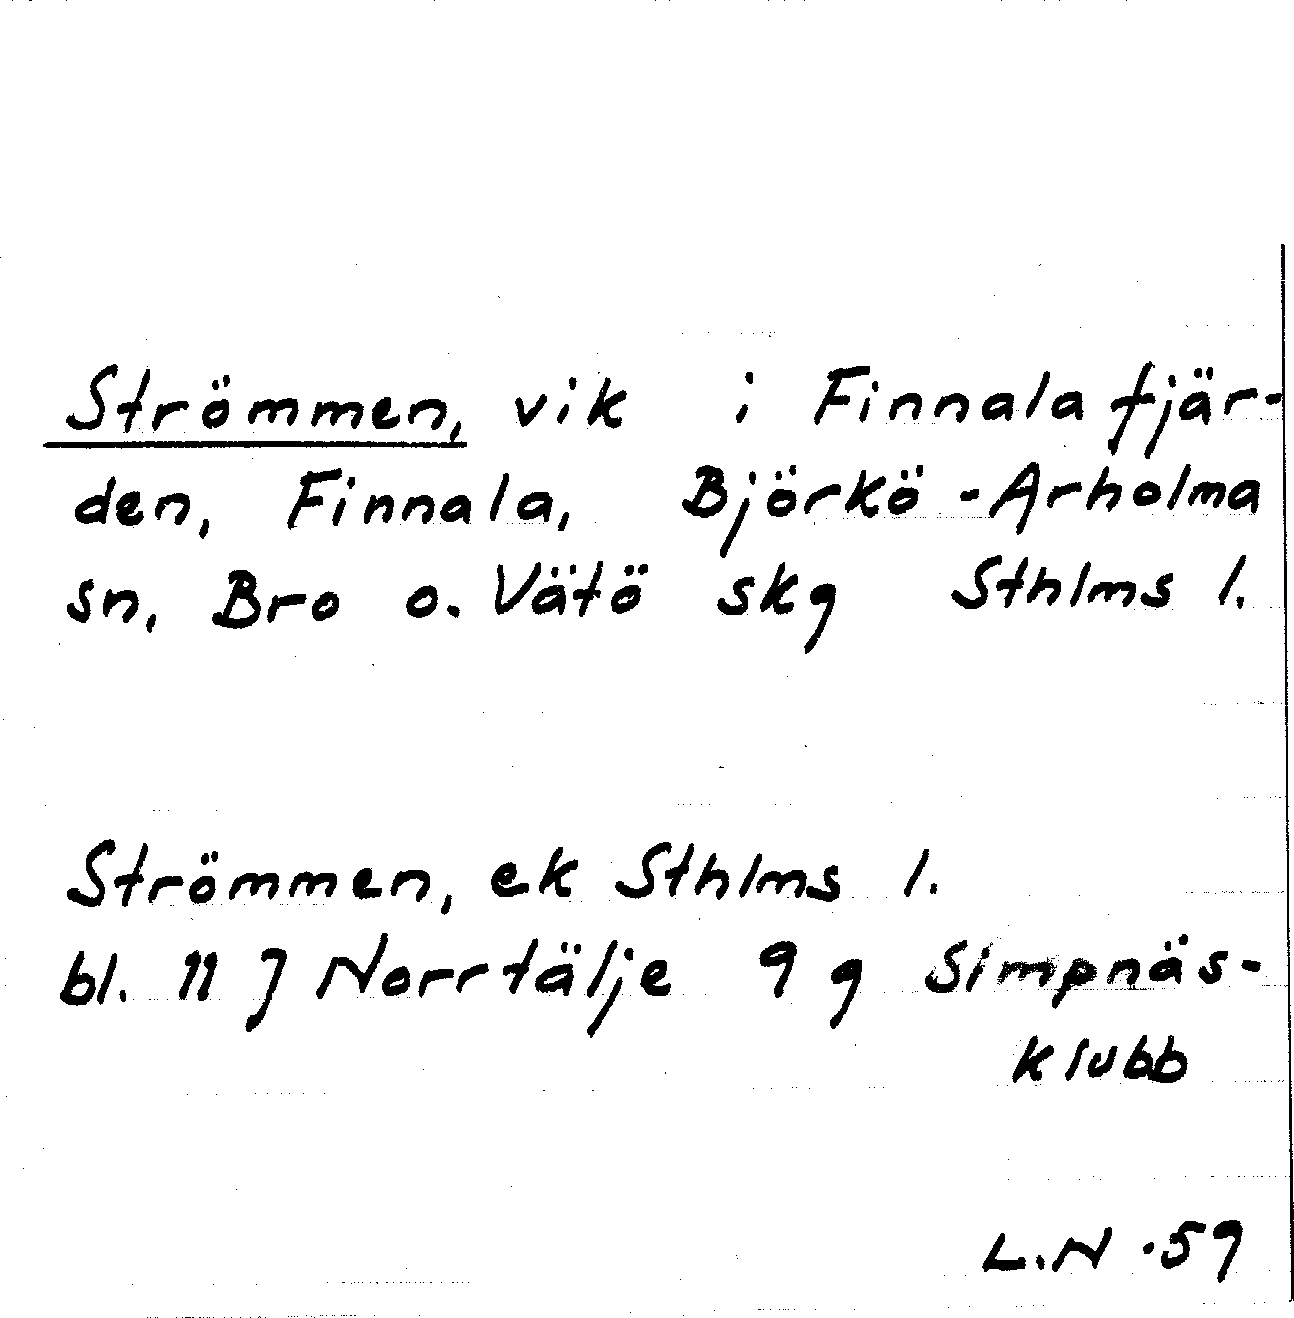 Strömmen, vik i Finnalafjär-
den, Finnala, Björkö-Arholma
sn, Bro o. Vätö skg Sthlms l.
Strömmen, ek Sthlms l.
bl. 11 J Norrtälje 9 g Simpnäs-
klubb
L.N .59